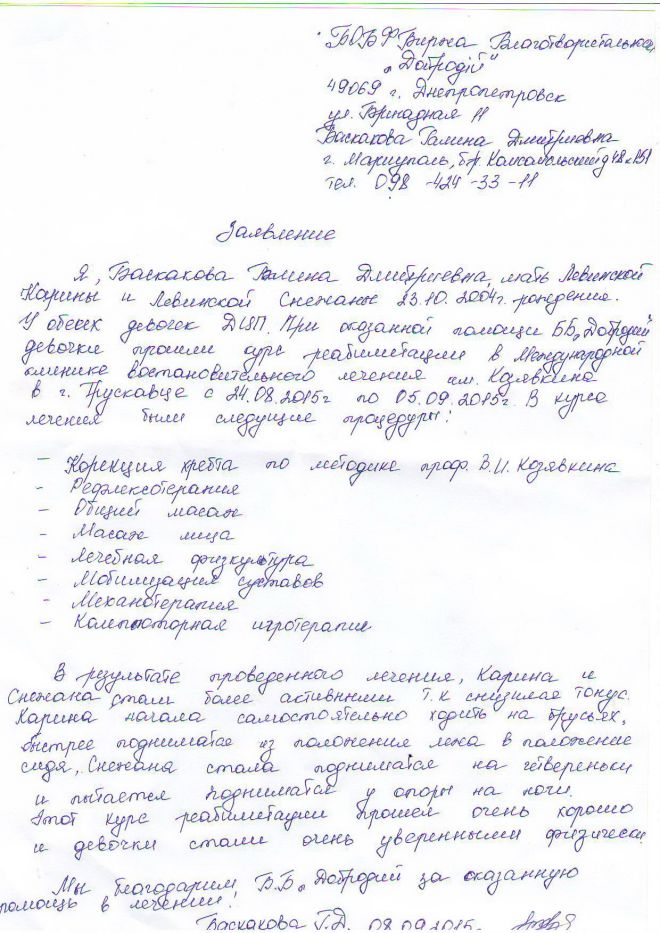 БОБФ Биржа Благотворительности
„Добродій“
49069 г. Днепропетровск
ул. Бригадная 11
Баскакова Галина Дмитриевна
г. Мариуполь, бр. Комсомольский д 48
тел. 098 -424 -33 -11
Заявление
Я, Баскакова Галина Дмитриевна, мать Левинской
Карины и Левинской Снежаны 23.10.2004г. рождения.
У обеих девочек ДЦП. При оказанной помощи ББ„Добродій“
девочки прошли курс реабилитации в Международной
клинике востановительного лечения им. Козявкина
в г. Трускавце с 24.08.2015г по 05.09.2015г. В курсе
лечения были следущие процедуры:
- Корекция хребта по методике проф. В.И. Козявкина
- Рефлексотерапия
- Общий масаж
- Масаж лица
- Лечебная физкультура
- Мобилизация суставов
- Механотерапия
- Компюторная игротерапия
В результате проведенного лечения, Карина и
Снежана стали более активными т.к снизился тонус.
Карина начала самостоятельно ходить на брусьях,
быстрее подниматся из положения лежа в положение
сидя, Снежана стала подниматся на четвереньки
и пытается подниматся у опоры на ноги.
Этот курс реабилитации прошел очень хорошо
и девочки стали очень уверенными физически
Мы благодарим Б.Б„Добродій за оказанную
помощь в лечении!
Баскакова Г.Д. 08.09.2015г.